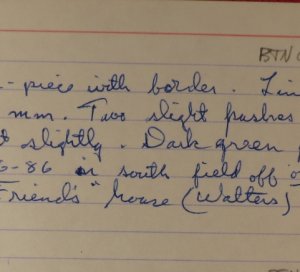 BTN
-piece with border. Lin
mm. Two slight pushes
t slightly. Dark green
6-86 in south field off of
Friend's" house (Walters)